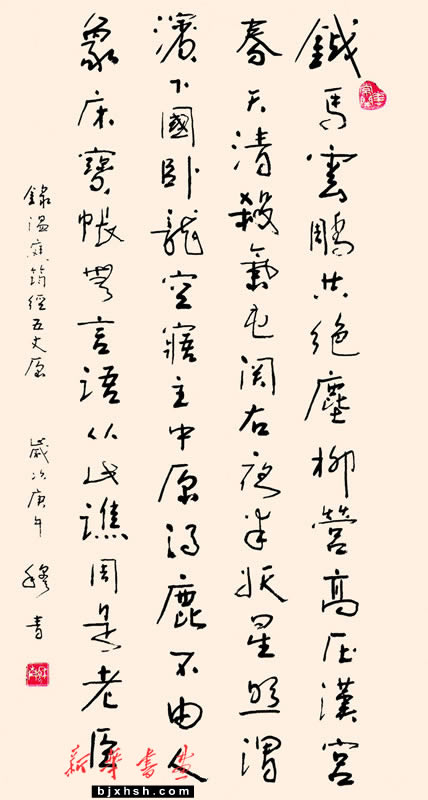 鐵馬雲鵰共絶塵柳營高压漢宮
春天清殺氣屯関右夜半妖星照渭
濱下國卧龍空寤主中原得鹿不由人
象床寳帳無言語从此譙周是老臣
録温庭筠經五丈原 歲次庚午 穆書
新華書畫
bjxhsh.com